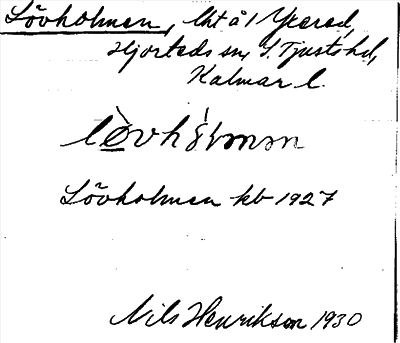 Lövholmen, lht å 1 Yxered,
Hjorteds sn, S. Tjusts hd,
Kalmar l.
Lövholmen kb 1927
Nils Henrikson 1930